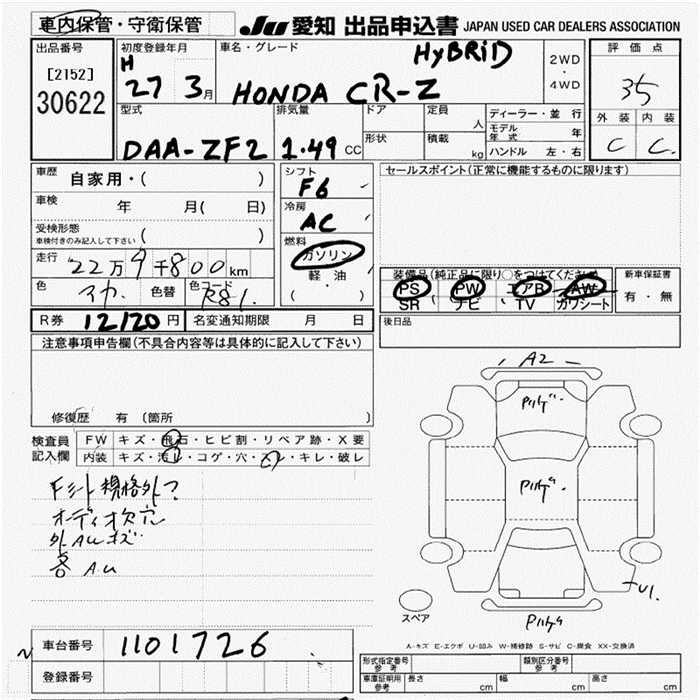 車内保管・守衛保管
JU 愛知 出品申込書 JAPAN USED CAR DEALERS ASSOCIATION
出品番号
[2152]
30622
初度登録年月
H
27 3月
車名・グレード
HYBRiD
HONDA CR-Z
2WD
・
4WD
評価点
35
外装 内装
C C
型式
DAA-ZF2
排気量
1.49 CC
ドア
形状
定員
人
積載
kg
ディーラー・並行
モデル年式 年
ハンドル 左・右
車歴
自家用・( )
車検
年 月( 日)
受検形態
車検付きのみ記入して下さい ( )
走行
22万9千800km
色
色替
色コード
R81
シフト
F6
冷房
AC
燃料
ガソリン
軽・油
( ・ )
セールスポイント(正常に機能するものに限ります)
装備品(純正品に限り○をつけてください)
PS PW エアB AW
SR ナビ TV カワシート
新車保証書
有・無
後日品
R券 12120円
名変通知期限 月 日
注意事項申告欄(不具合内容等は具体的に記入して下さい)
修復歴 有(箇所
検査員
記入欄
FW キズ・飛石・ヒビ割・リペア跡・X要
内装 キズ・汚レ・コゲ・穴・スレ・キレ・破レ
Fシート規格外?
オーディオ欠穴
外AWキズ
各AW
A2
U1
スペア
A-キズ E-エクボ U-凹み W-補修跡 S-サビ C-腐食 XX-交換済
車台番号
1101726
登録番号
形式指定番号
参考
類別区分番号
参考
車庫証明用
参考
長さ cm
幅 cm
高さ cm